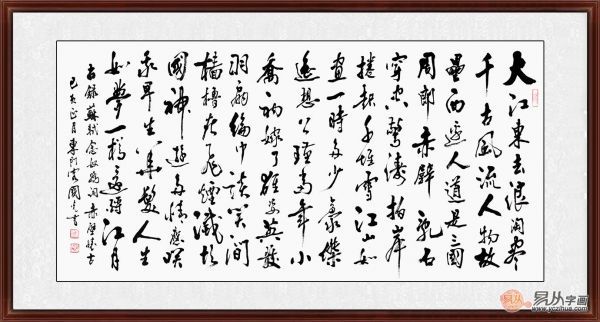 大江東去浪淘盡
千古風流人物故
壘西邊人道是三國
周郎赤壁亂石
穿空驚濤拍岸
捲起千堆雪江山如
畫一時多少豪傑
遙想公瑾當年小
喬初嫁了雄姿英發
羽扇綸巾談笑間
檣櫓灰飛煙滅故
國神遊多情應笑
我早生華髮人生
如夢一樽還酹江月
右錄蘇軾念奴嬌詞赤壁懷古
己亥正月國書
易从字画
www.yczihua.com